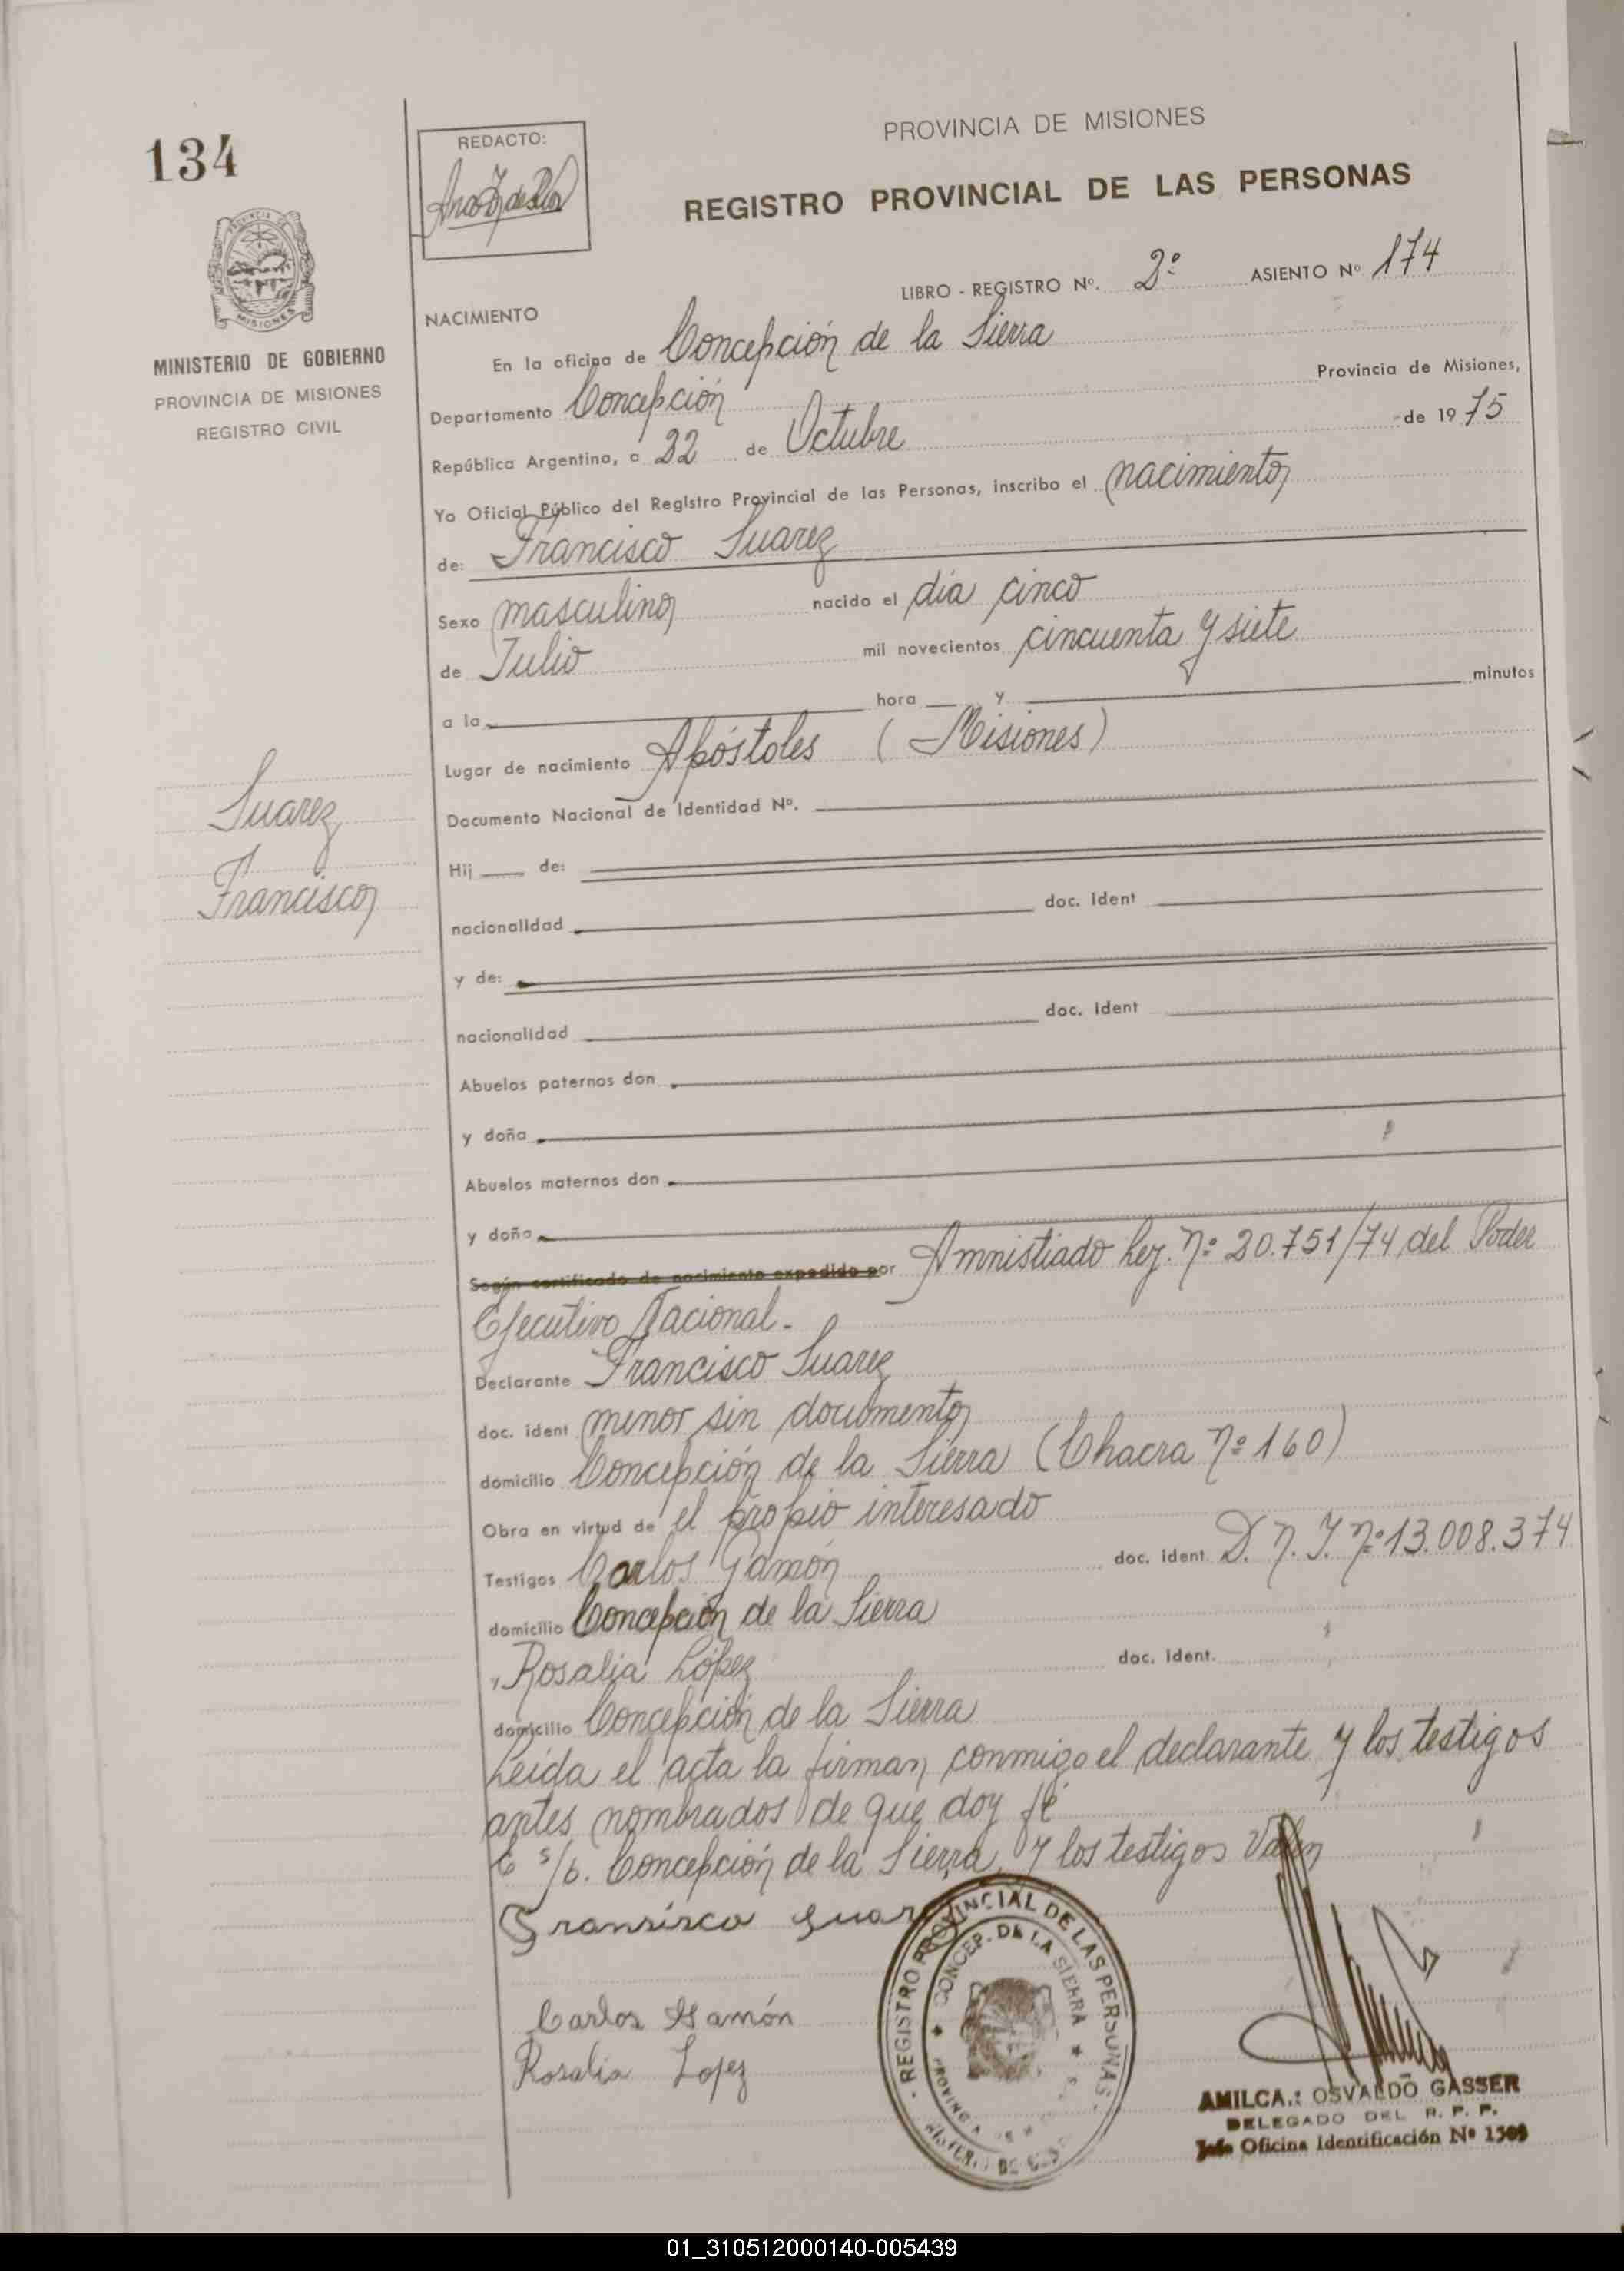 134
REDACTO:
PROVINCIA DE MISIONES
REGISTRO PROVINCIAL DE LAS PERSONAS
LIBRO - REGISTRO Nº. 2º ASIENTO Nº 174
MISIONES
MINISTERIO DE GOBIERNO
PROVINCIA DE MISIONES
REGISTRO CIVIL
NACIMIENTO
En la oficina de Concepción de la Sierra
Departamento Concepción Provincia de Misiones,
República Argentina, a 22 de Octubre de 1975
Yo Oficial Público del Registro Provincial de las Personas, inscribo el nacimiento
de: Francisco Suarez
Sexo masculino nacido el día cinco
de Julio mil novecientos cincuenta y siete
a la hora y minutos
Lugar de nacimiento Apóstoles (Misiones)
Suarez
Francisco
Documento Nacional de Identidad Nº.
Hij de:
nacionalidad doc. ident
y de:
nacionalidad doc. ident
Abuelos paternos don
y doña
Abuelos maternos don
y doña
Según certificado de nacimiento expedido por Amnistiado Ley. Nº 20.751/74 del Poder
Ejecutivo Nacional.-
Declarante Francisco Suarez
doc. ident menor sin documento
domicilio Concepción de la Sierra (Chacra Nº 160)
Obra en virtud de el propio interesado
Testigos Carlos Gamón doc. ident D.N.I. Nº 13.008.374
domicilio Concepción de la Sierra
, Rosalia López doc. ident.
domicilio Concepción de la Sierra
Leída el acta la firman conmigo el declarante y los testigos
antes nombrados de que doy fé
s/b. Concepción de la Sierra, y los testigos Valen
Fransisco Suarez
Carlos Gamón
Rosalia Lopez
REGISTRO PROVINCIAL DE LAS PERSONAS
CONCEP. DE LA SIERRA
AMILCA.: OSVALDO GASSER
DELEGADO DEL R. P. P.
Jefe Oficina Identificación Nº 1509
01_310512000140-005439